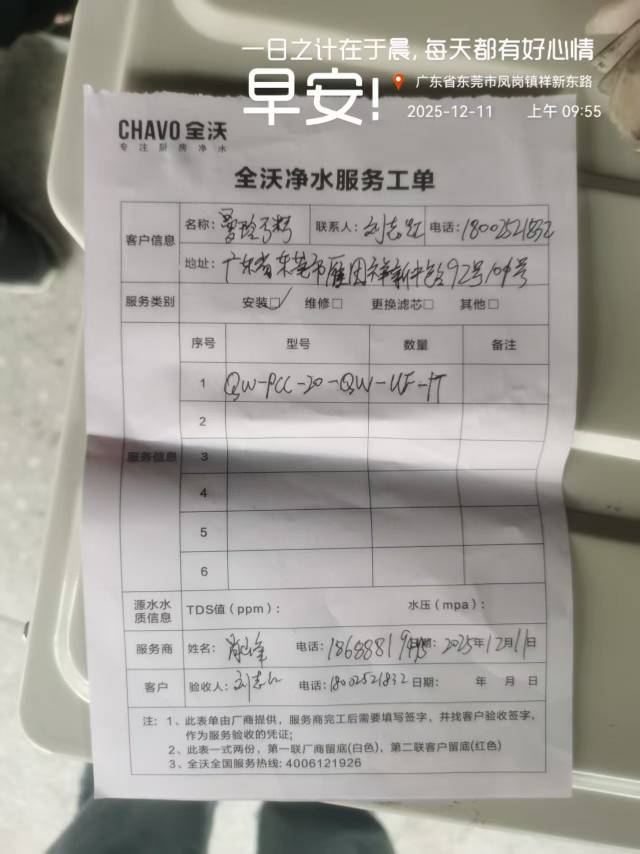 一日之计在于晨,每天都有好心情
早安!
广东省东莞市凤岗镇祥新东路
2025-12-11 上午 09:55
CHAVO 全沃
专注厨房净水
全沃净水服务工单
客户信息
名称: 联系人:刘志红 电话:18002521832
地址:广东省东莞市雁田祥新中路92号101号
服务类别 安装☑ 维修□ 更换滤芯□ 其他□
服务信息
序号 型号 数量 备注
1 QW-PCC-20-QW-UF-1T
2
3
4
5
6
源水水质信息 TDS值(ppm): 水压(mpa):
服务商 姓名: 电话: 日期: 2025年12月11日
客户 验收人:刘志红 电话:18002521832 日期: 年 月 日
注: 1、此表单由厂商提供,服务商完工后需要填写签字,并找客户验收签字,
作为服务验收的凭证;
2、此表一式两份,第一联厂商留底(白色),第二联客户留底(红色)
3、全沃全国服务热线: 4006121926